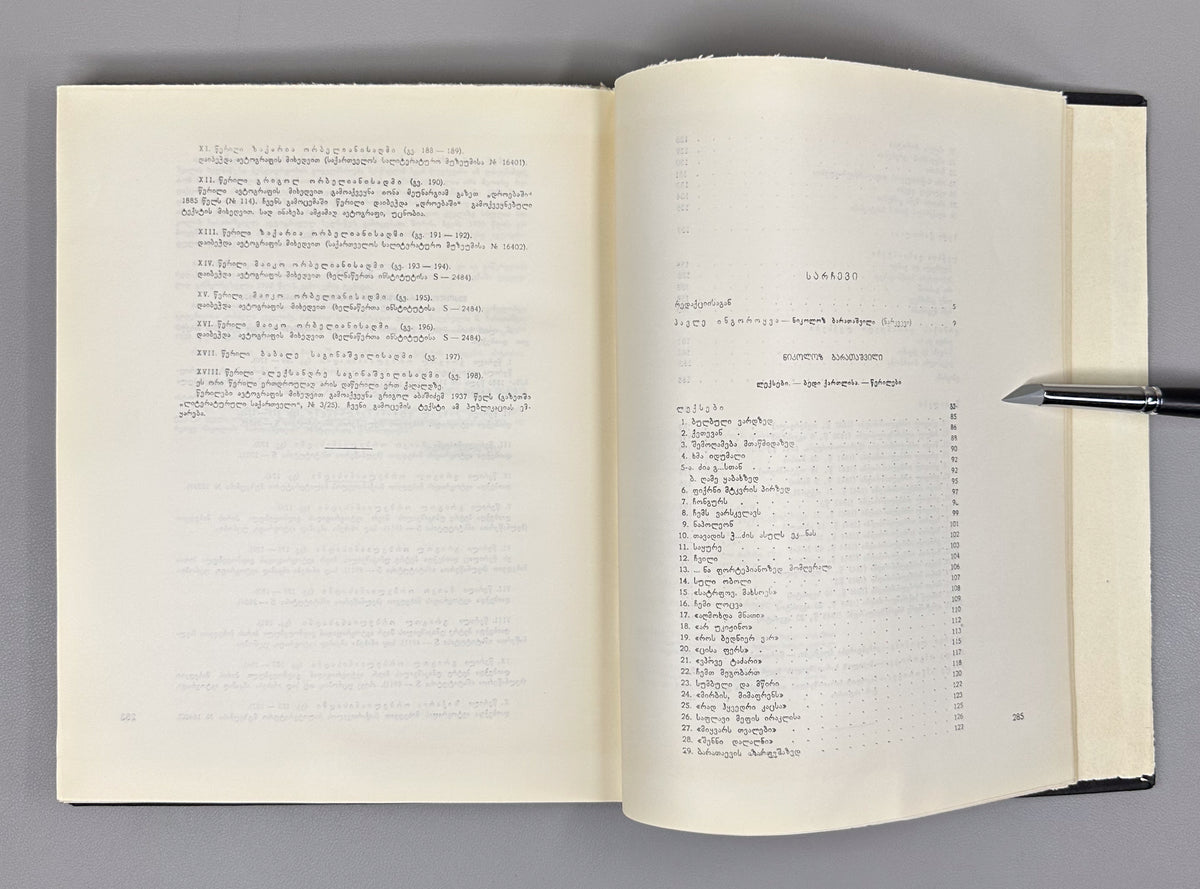 XI. წერილი ზაქარია ორბელიანისადმი (გვ. 188 — 189).
დაიბეჭდა ავტოგრაფის მიხედვით (საქართველოს სალიტერატურო მუზეუმისა № 16401).
XII. წერილი გრიგოლ ორბელიანისადმი (გვ. 190).
წერილი ავტოგრაფის მიხედვით გამოაქვეყნა იონა მეუნარგიამ გაზეთ „დროებაში“
1885 წელს (№ 114). ჩვენს გამოცემაში წერილი დაიბეჭდა „დროებაში“ გამოქვეყნებული
ტექსტის მიხედვით. სად ინახება ამჟამად ავტოგრაფი, უცნობია.
XIII. წერილი ზაქარია ორბელიანისადმი (გვ. 191 — 192).
დაიბეჭდა ავტოგრაფის მიხედვით (საქართველოს სალიტერატურო მუზეუმისა № 16402).
XIV. წერილი მაიკო ორბელიანისადმი (გვ. 193 — 194).
დაიბეჭდა ავტოგრაფის მიხედვით (ხელნაწერთა ინსტიტუტისა S — 2484).
XV. წერილი მაიკო ორბელიანისადმი (გვ. 195).
დაიბეჭდა ავტოგრაფის მიხედვით (ხელნაწერთა ინსტიტუტისა S — 2484).
XVI. წერილი მაიკო ორბელიანისადმი (გვ. 196).
დაიბეჭდა ავტოგრაფის მიხედვით (ხელნაწერთა ინსტიტუტისა S — 2484).
XVII. წერილი ბაბალე საგინაშვილისადმი (გვ. 197).
XVIII. წერილი ალექსანდრე საგინაშვილისადმი (გვ. 198).
ეს ორი წერილი ერთდროულად არის დაწერილი ერთ ქაღალდზე.
წერილები ავტოგრაფის მიხედვით გამოაქვეყნა გრიგოლ აბაშიძემ 1937 წელს (გაზეთში
„ლიტერატურული საქართველო“, № 3/25). ჩვენი გამოცემის ტექსტი ამ პუბლიკაციას ემ-
ყარება.
სარჩევი
რედაქციისაგან 5
პავლე ინგოროყვა — ნიკოლოზ ბარათაშვილი (ნარკვევი) . . . . 9
ნიკოლოზ ბარათაშვილი
ლექსები. — ბედი ქართლისა. — წერილები
ლექსები 83
1. ბულბული ვარდზედ 85
2. ქეთევან 86
3. შემოღამება მთაწმიდაზედ 88
4. ხმა იდუმალი 90
5-ა. ძია გ...სთან 92
ბ. ღამე ყაბახზედ 92
6. ფიქრნი მტკვრის პირზედ 95
7. ჩონგურს 97
8. ჩემს ვარსკვლავს
9. ნაპოლეონ 99
10. თავადის ჭ...ძის ასულს ეკ...ნას 101
11. საყურე 102
12. ჩვილი 103
13. ... ნა ფორტეპიანოზედ მომღერალი 104
14. სული ობოლი 106
15. «სატრფოვ, მახსოვს» 107
16. ჩემი ლოცვა 108
17. «აღმოხდა მნათი» 109
18. «არ უკიჟინო» 110
19. «როს ბედნიერ ვარ» 112
20. «ცისა ფერს» 113
21. «ვპოვე ტაძარი» 115
22. ჩემთ მეგობართ 117
23. სუმბული და მწირი 118
24. «მირბის, მიმაფრენს» 120
25. «რად ჰყვედრი კაცსა» 122
26. საფლავი მეფის ირაკლისა 123
27. «მიყვარს თვალები» 125
28. «შენნი დალალნი» 126
29. ბარათაევის აზარფეშაზედ 127
285